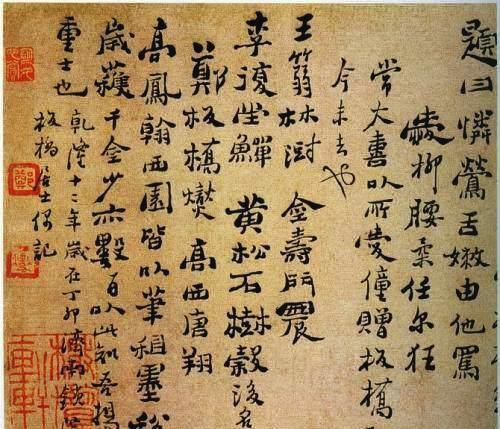 題曰憐鶯舌嫩由他罵
愛柳腰柔任尔狂
常大喜以所愛僮贈板橋
今未去也
王篛林澍 金壽門農
李復堂鱓 黃松石樹穀後名
鄭板橋燮 高西唐翔
高鳳翰西園皆以筆租墨稅
歲穫千金少亦數百以此知吾揚
重士也 乾隆十二年歲在丁卯濟南鎖
板橋居士偶記